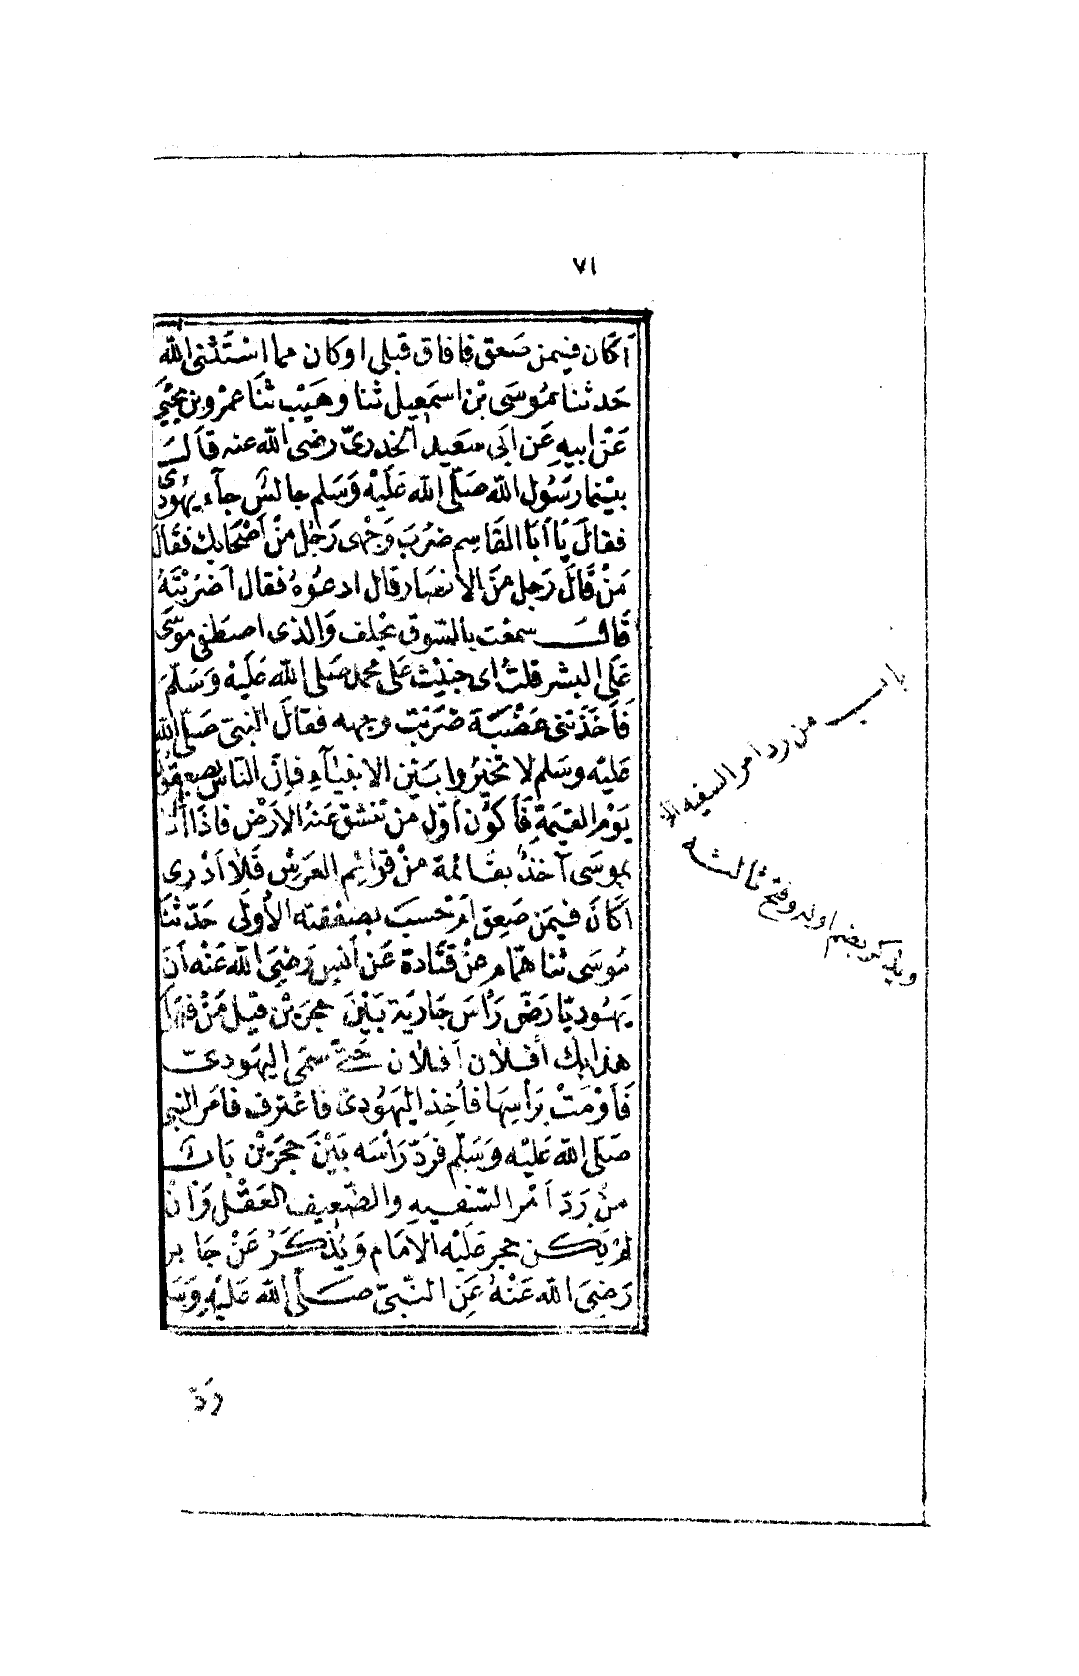 ٧١
أكان فيمن صعق فافاق قبلى او كان مما استثنى الله
حدثنا موسى بن اسمعيل ثنا وهيب ثنا عمرو بن يحيى
عن ابيه عن ابى سعيد الخدرى رضى الله عنه قال
بينما رسول الله صلى الله عليه وسلم جالس جآء يهودى
فقال يا أبا القاسم ضرب وجهى رجل من أصحابك فقال
من قال رجل من الانصار قال ادعوه فقال أضربته
قال سمعت بالسوق يحلف والذى اصطفى موسى
على البشر قلت اى خبيث على محمد صلى الله عليه وسلم
فأخذتنى غضبة ضربت وجهه فقال النبى صلى الله
عليه وسلم لا تخيروا بين الانبيآء فإن الناس يصعقون
يوم القيمة فأكون أول من تنشق عنه الارض فاذا أنا
بموسى آخذ بقائمة من قوائم العرش فلا أدرى
أكان فيمن صعق أم حسب بصعقته الأولى حدثنا
موسى ثنا همام عن قتادة عن أنس رضى الله عنه أن
يهوديا رض رأس جارية بين حجرين قيل من فعل
هذا بك أفلان أفلان حتى سمى اليهودى
فأومت برأسها فأخذ اليهودى فاعترف فأمر النبى
صلى الله عليه وسلم فرد رأسه بين حجرين باب
من رد أمر السفيه والضعيف العقل وان
لم يكن حجر عليه الامام ويذكر عن جابر
رضى الله عنه عن النبى صلى الله عليه وسلم
رد
باب من رد امر السفيه الخ
ويذكر بضم اوله وفتح ثالثه